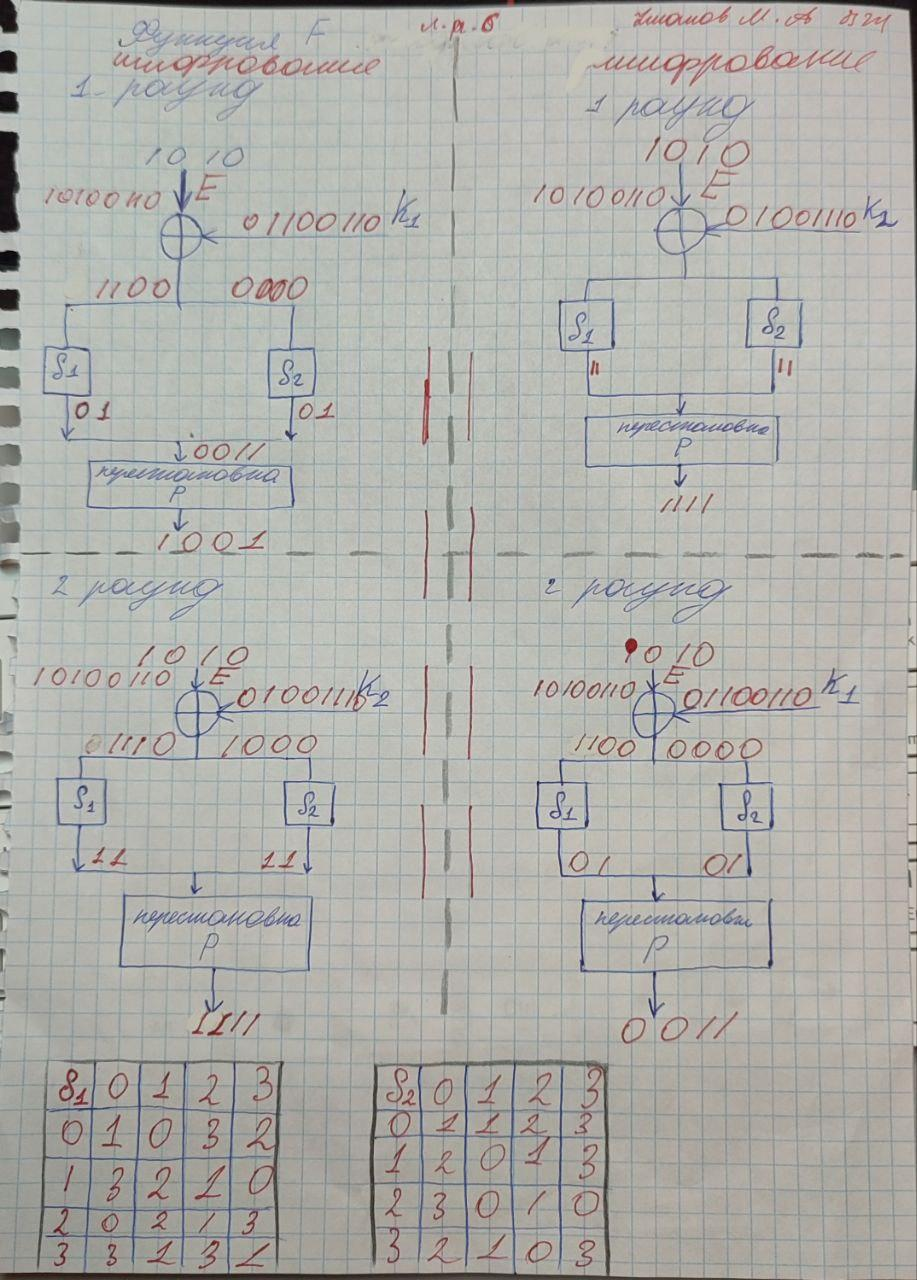 л.р.6
Функция F
шифрование
1- раунд
10 10
10100110 E
01100110 K1
1100 0000
S1 S2
01 01
0011
перестановка
P
1001
М. А
шифрование
1 раунд
1010
10100110 E
01001110 K2
S1 S2
11 11
перестановка
P
1111
2 раунд
10 10
10100110 E
01001110 K2
01110 1000
S1 S2
11 11
перестановка
P
1111
2 раунд
10 10
10100110 E
01100110 K1
1100 0000
S1 S2
01 01
перестановка
P
0011
S1 0 1 2 3
0 1 0 3 2
1 3 2 1 0
2 0 2 1 3
3 3 1 3 1
S2 0 1 2 3
0 1 1 2 3
1 2 0 1 3
2 3 0 1 0
3 2 1 0 3